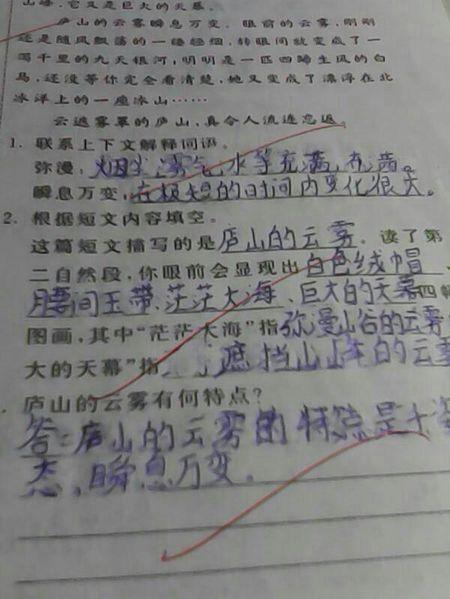 山峰，它又是巨大的天幕。
庐山的云雾瞬息万变。眼前的云雾，刚刚
还是随风飘荡的一缕轻烟，转眼间就变成了一
泻千里的九天银河；明明是一匹四蹄生风的白
马，还没等你完全看清楚，她又变成了漂浮在北
冰洋上的一座冰山……
云遮雾罩的庐山，真令人流连忘返。
1. 联系上下文解释词语。
弥漫：烟尘、雾气、水等充满，布满。
瞬息万变：在极短的时间内变化很大。
2. 根据短文内容填空。
这篇短文描写的是庐山的云雾。读了第
二自然段，你眼前会显现出白色绒帽
腰间玉带、茫茫大海、巨大的天幕四幅
图画，其中“茫茫大海”指弥漫山谷的云雾
大的天幕”指 遮挡山峰的云雾
庐山的云雾有何特点？
答：庐山的云雾的特点是千姿
态，瞬息万变。